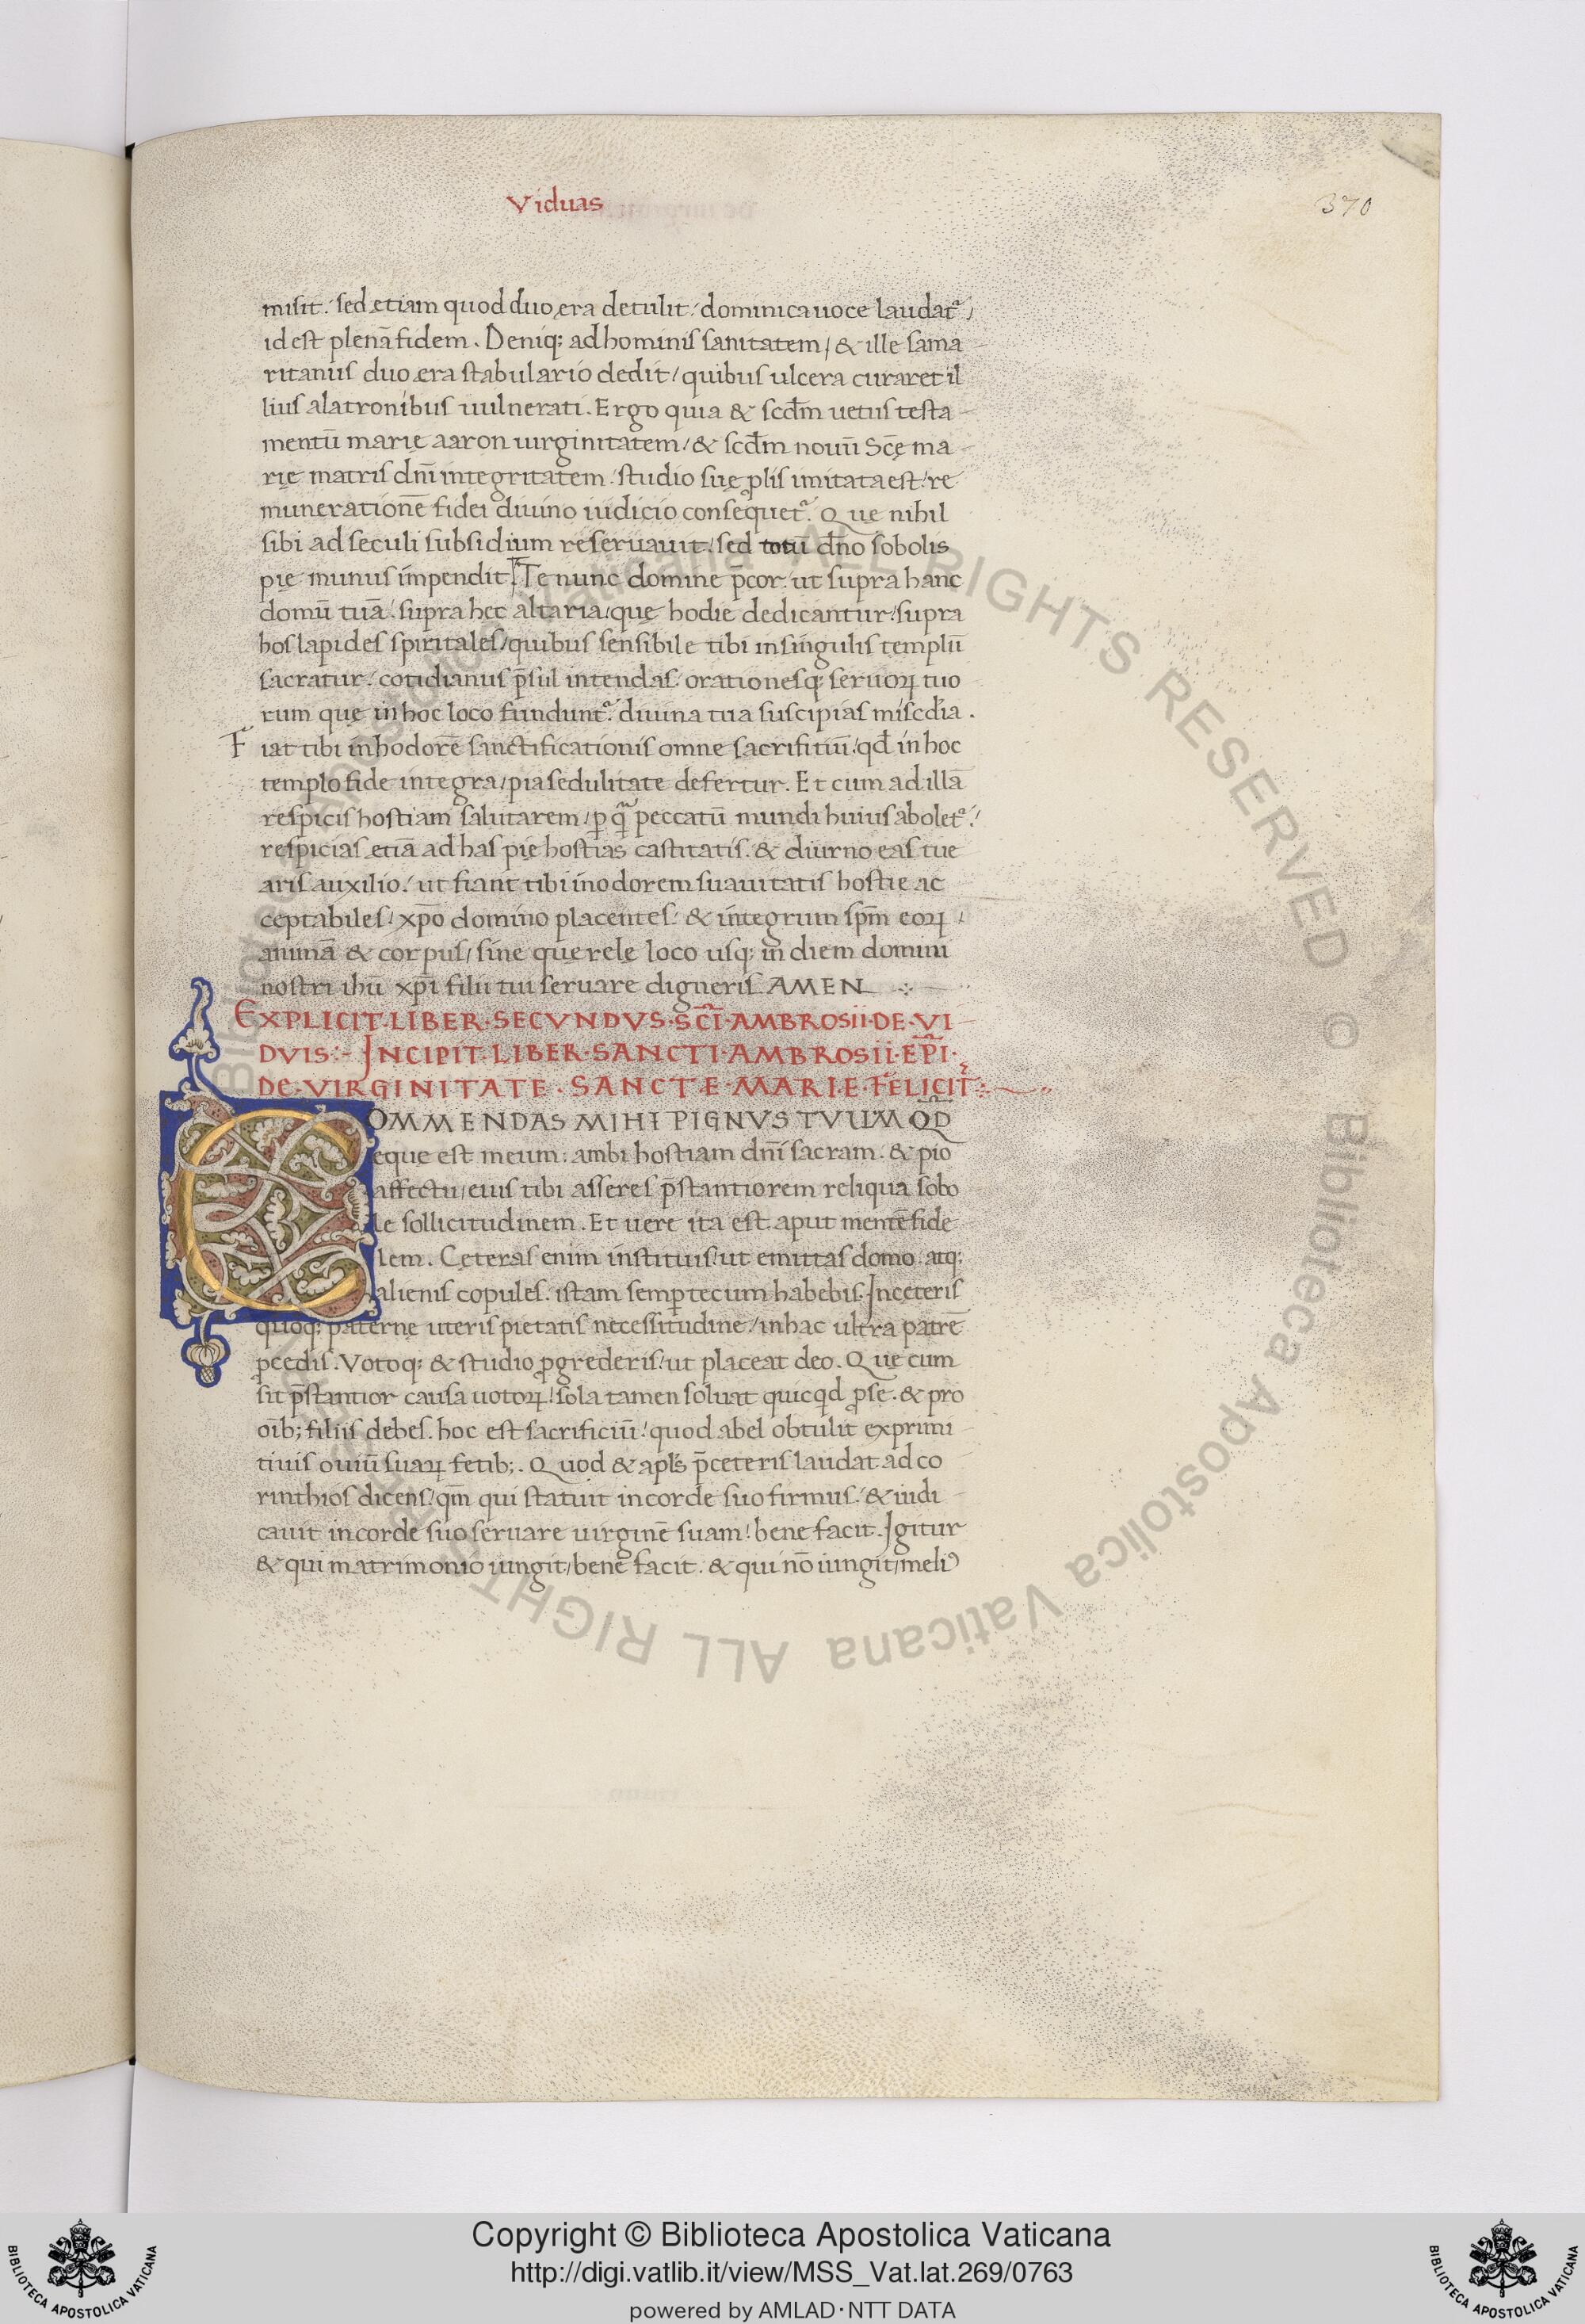 Viduas
370
misit. sed etiam quod duo era detulit. dominica uoce laudat᷒/
id est plenā fidem. Deniq; ad hominis sanitatem / & ille sama
ritanus duo era stabulario dedit / quibus ulcera curaret il
lius a latronibus uulnerati. Ergo quia & scd̄m uetus testa
mentū marię aaron uirginitatem / & scd̄m nouū Scę̄ ma
rię matris dn̄i integritatem. studio suę ꝓlis imitata est. re
munerationē fidei diuino iudicio consequet᷒. Que nihil
sibi ad seculi subsidium reseruauit. sed totū dn̄o sobolis
pię munus impendit. Te nunc domine p̄cor. ut supra hanc
domū tuā. supra hec altaria / quę hodie dedicantur. supra
hos lapides spiritales / quibus sensibile tibi in singulis templū
sacratur. cotidianus p̄sul intendas. orationesq; seruoꝝ tuo
rum quę in hoc loco fundunt᷒. diuina tua suscipias mis̄cdia.
Fiat tibi inhodorē sanctificationis omne sacrifitiū. qd̄ in hoc
templo fide integra / pia sedulitate defertur. Et cum ad illā
respicis hostiam salutarem / ꝑ quā peccatū mundi huius abolet᷒.
respicias etiā ad has pię hostias castitatis. & diurno eas tue
aris auxilio. ut fiant tibi in odorem suauitatis hostie ac
ceptabiles / xp̄o domino placentes. & integrum sp̄m eoꝝ /
animā & corpus / sine querelę loco usq; in diem domini
nostri ihū xp̄i filii tui seruare digneris AMEN
EXPLICIT·LIBER·SECVNDVS·SC̄I·AMBROSII·DE·VI
DVIS:- INCIPIT·LIBER·SANCTI·AMBROSII·EP̄I·
DE·VIRGINITATE·SANCTE·MARIE·FELICIT̄
COMMENDAS MIHI PIGNVS TVUM QD̄
eque est meum. ambi hostiam dn̄i sacram. & pio
affectu / eius tibi asseres p̄stantiorem reliqua sobo
le sollicitudinem. Et uere ita est aput mentē fide
lem. Cęteras enim instituis. ut emittas domo. atq;
alienis copules. istam semꝑ tecum habebis. In ceteris
quoq; paterne uteris pietatis necessitudine / in hac ultra patrē
ꝓcedis. Votoq; & studio ꝓgrederis / ut placeat deo. Que cum
sit p̄stantior causa uotoꝝ. sola tamen soluat quicqd ꝓ se. & pro
oīb; filiis debes. hoc est sacrificiū. quod abel obtulit ex primi
tiuis ouiū suaꝝ fetib;. Quod & apl̄s p̄ ceteris laudat ad co
rinthios dicens. qm̄ qui statuit in corde suo firmus. & iudi
cauit in corde suo seruare uirginē suam. bene facit. Igitur
& qui matrimonio iungit / bene facit. & qui nō iungit / meliꝰ
Biblioteca Apostolica Vaticana ALL RIGHTS RESERVED © Biblioteca Apostolica Vaticana ALL RIGHTS
Copyright © Biblioteca Apostolica Vaticana
http://digi.vatlib.it/view/MSS_Vat.lat.269/0763
powered by AMLAD·NTT DATA
BIBLIOTECA APOSTOLICA VATICANA
BIBLIOTECA APOSTOLICA VATICANA